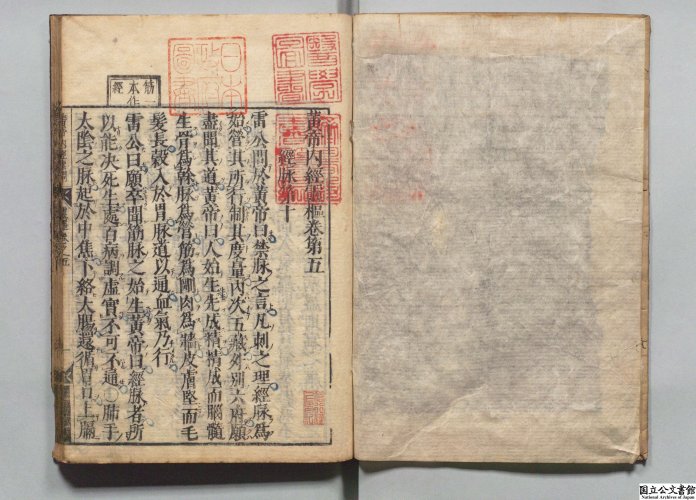 黄帝内經靈樞卷第五
經脉第十
雷公問於黄帝曰禁脉之言凡刺之理經脉爲
始營其所行制其度量内次五藏外別六府願
盡聞其道黄帝曰人始生先成精精成而腦髓
生骨爲幹脉爲營筋爲剛肉爲牆皮膚堅而毛
髮長穀入於胃脉道以通血氣乃行
雷公曰願卒聞筋脉之始生黄帝曰經脉者所
以能決死生處百病調虚實不可不通〇肺手
太陰之脉起於中焦下絡大腸還循胃口上膈
筋一
本作
經
日本
政府
圖書
醫學
國立公文書館
National Archives of Japan